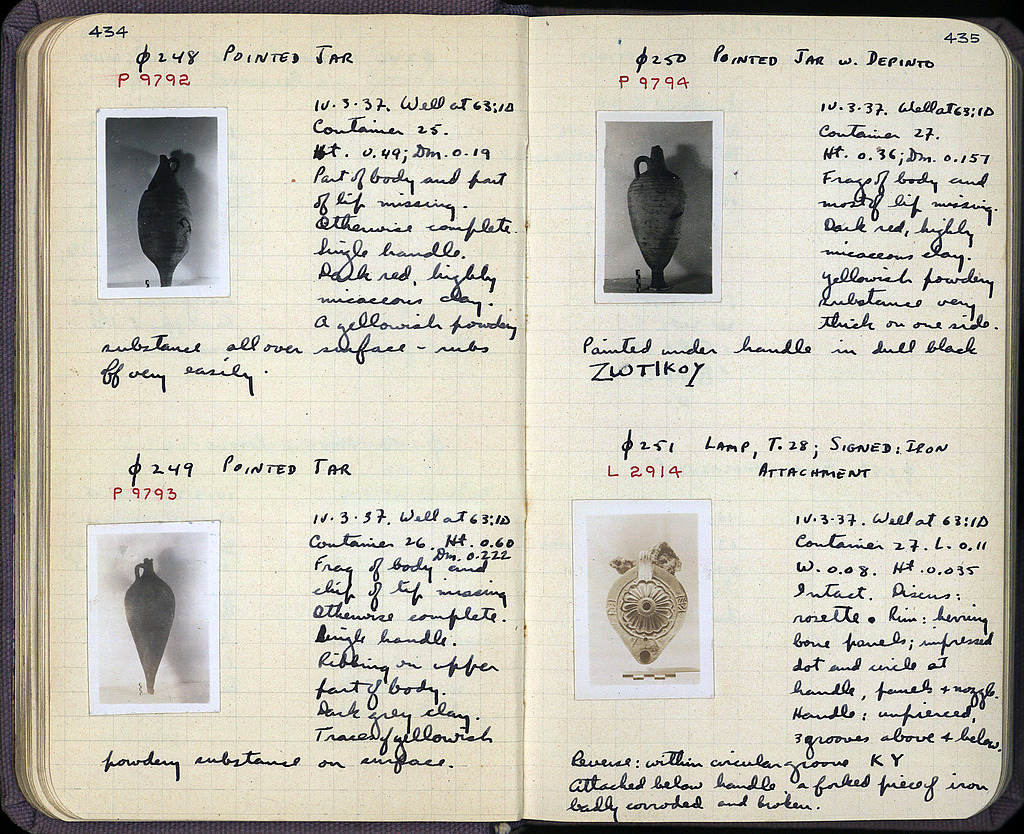 434
ϕ248 POINTED JAR
P 9792
IV.3.37. Well at 63:1Δ
Container 25.
Ht. 0.49; Dm. 0.19
Part of body and part
of lip missing.
Otherwise complete.
Single handle.
Dark red, highly
micaceous clay.
A yellowish powdery
substance all over surface - rubs
off very easily.
ϕ249 POINTED JAR
P 9793
IV.3.37. Well at 63:1Δ
Container 26. Ht. 0.60
Dm. 0.222
Frag of body and
chip of lip missing
Otherwise complete.
Single handle.
Ribbing on upper
part of body.
Dark grey clay.
Traces of yellowish
powdery substance on surface.
435
ϕ250 POINTED JAR W. DEPINTO
P 9794
IV.3.37. Well at 63:1Δ
Container 27.
Ht. 0.36; Dm. 0.157
Frags of body and
most of lip missing.
Dark red, highly
micaceous clay.
Yellowish powdery
substance very
thick on one side.
Painted under handle in dull black
ZWTIKOY
ϕ251 LAMP, T.28; SIGNED: IRON
ATTACHMENT
L 2914
IV.3.37. Well at 63:1Δ
Container 27. L. 0.11
W. 0.08. Ht. 0.035
Intact. Discus:
rosette. Rim: herring
bone panels; impressed
dot and circle at
handle, panels + nozzle.
Handle: unpierced,
3 grooves above + below.
Reverse: within circular groove KY
Attached below handle a forked piece of iron
badly corroded and broken.